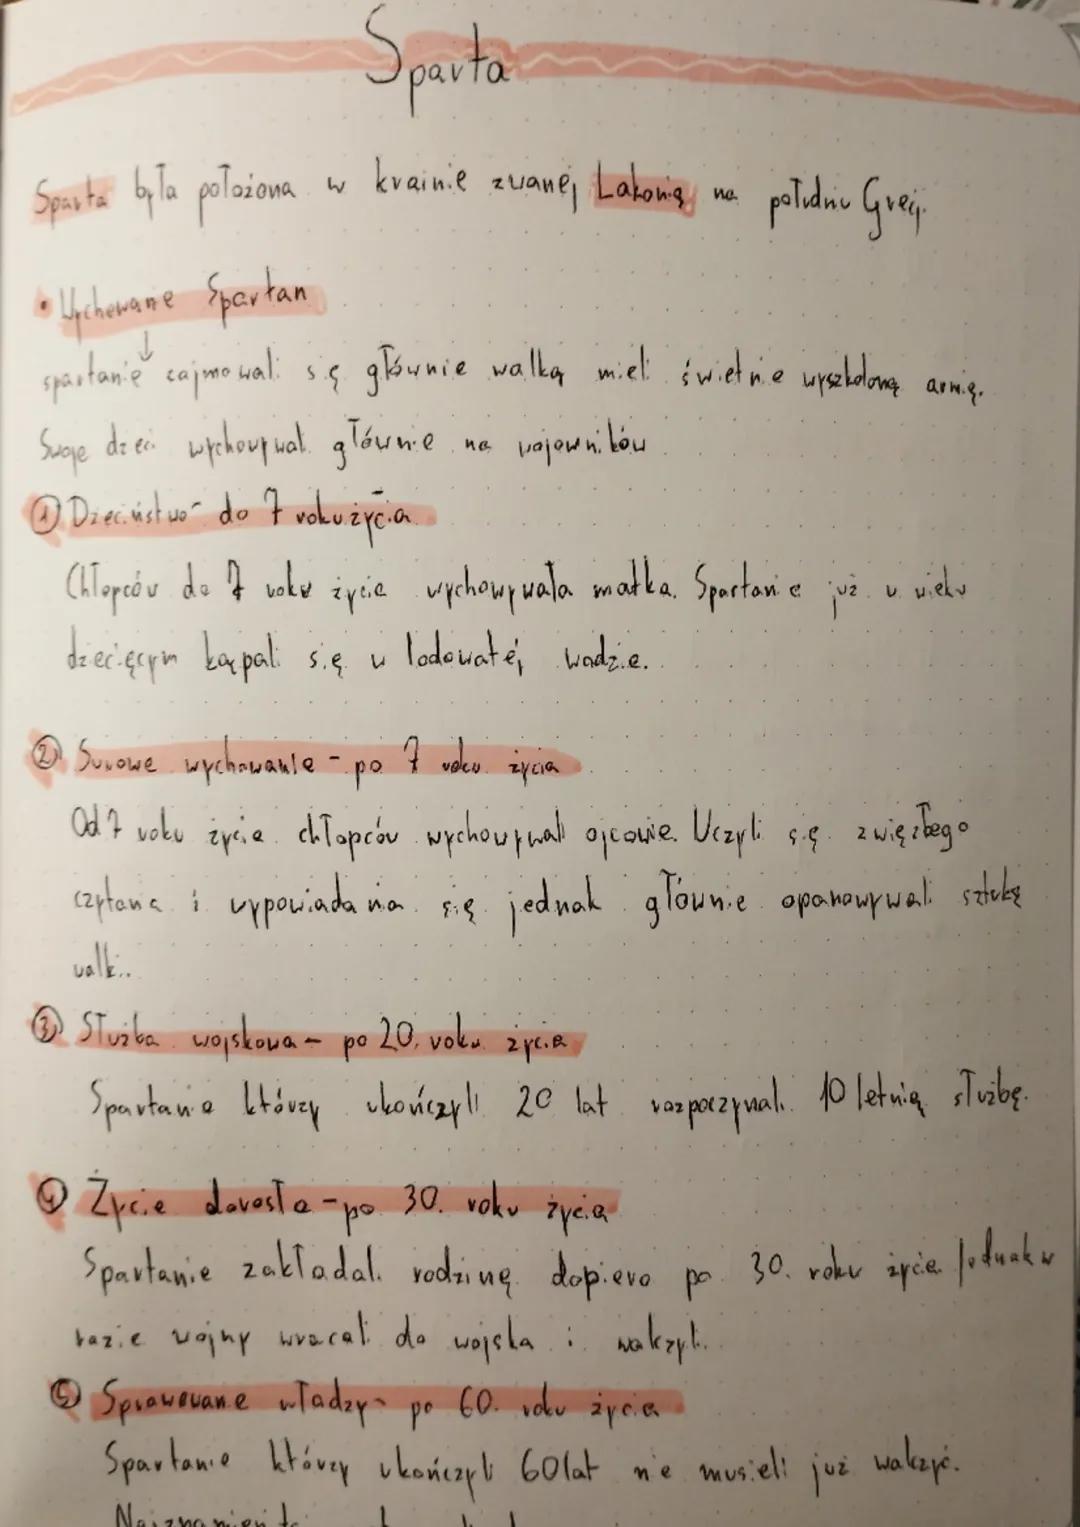 Sparta
Sparta była położona w krainie zwanej Lakonią na południu Grecji.
• Wychowanie Spartan
spartanie zajmowali się głównie walką mieli świetnie wyszkoloną armię.
Swoje dzieci wychowywali głównie na wojowników
① Dzieciństwo - do 7 roku życia
Chłopców do 7 roku życia wychowywała matka. Spartanie już w wieku
dziecięcym kąpali się w lodowatej wodzie.
② Surowe wychowanie - po 7 roku życia
Od 7 roku życia chłopców wychowywali ojcowie. Uczyli się zwięzłego
czytania i wypowiadania się jednak głównie opanowywali sztukę
walki.
③ Służba wojskowa - po 20. roku życia
Spartanie którzy ukończyli 20 lat rozpoczynali 10 letnią służbę.
④ Życie dorosłe - po 30. roku życia
Spartanie zakładali rodzinę dopiero po 30. roku życia Jednak w
razie wojny wracali do wojska i walczyli.
⑤ Sprawowanie władzy - po 60. roku życia
Spartanie którzy ukończyli 60 lat nie musieli już walczyć.